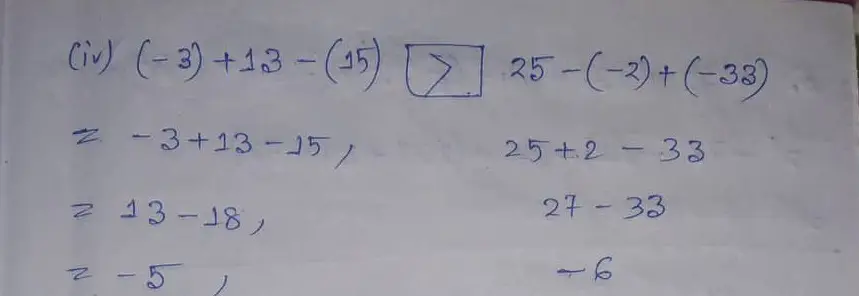 (iv) (-3) + 13 - (15) > 25 - (-2) + (-33)
= -3 + 13 - 15, 25 + 2 - 33
= 13 - 18, 27 - 33
= -5, -6